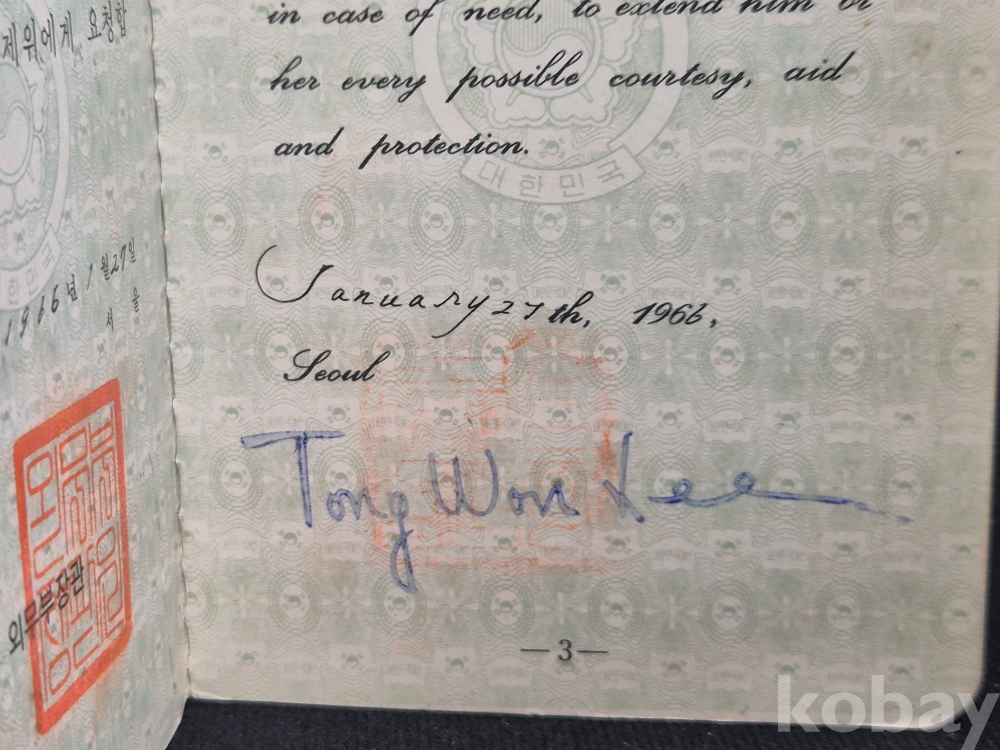 제위에게 요청함
1966년 1월27일
서울
외무부장관
in case of need, to extend him or
her every possible courtesy, aid
and protection.
대한민국
January 27th, 1966,
Seoul
Tong Won Lee
—3—
kobay